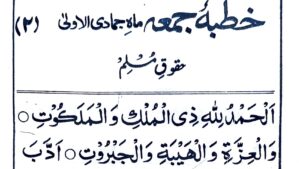 خطبۂ جمعہ ماہِ جمادی الاولیٰ (۲)
حقوقِ مُسْلِم
اَلْحَمْدُ لِلّٰهِ ذِی الْمُلْكِ وَالْمَلَكُوْتِ ○
وَالْعِزَّةِ وَالْهَيْبَةِ وَالْجَبَرُوْتِ ○ اَدَّبَ